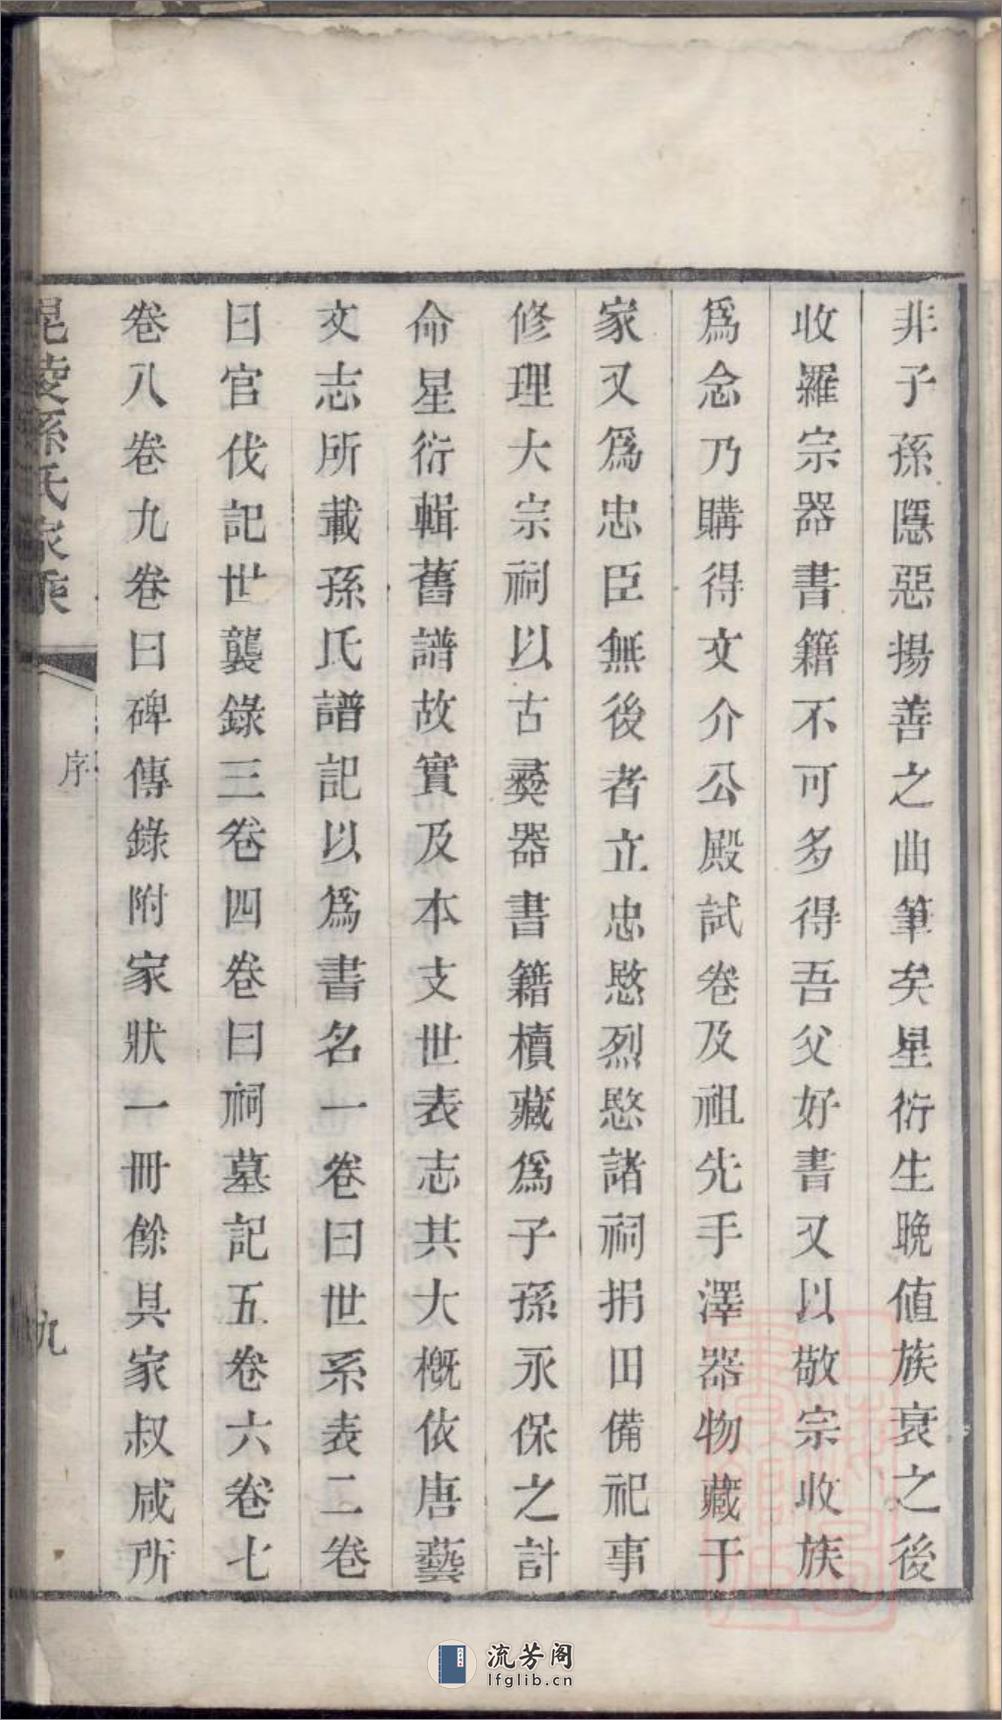 非子孫隱惡揚善之曲筆矣星衍生晚値族衰之後
收羅宗器書籍不可多得吾父好書又以敬宗收族
爲念乃購得文介公殿試卷及祖先手澤器物藏于
家又爲忠臣無後者立忠愍烈愍諸祠捐田備祀事
修理大宗祠以古彜器書籍櫝藏爲子孫永保之計
命星衍輯舊譜故實及本支世表志其大槪依唐藝
文志所載孫氏譜記以爲書名一卷曰世系表二卷
曰官伐記世襲錄三卷四卷曰祠墓記五卷六卷七
卷八卷九卷曰碑傳錄附家狀一冊餘具家叔咸所
毘陵孫氏家乘
序
九
流芳阁
lfglib.cn